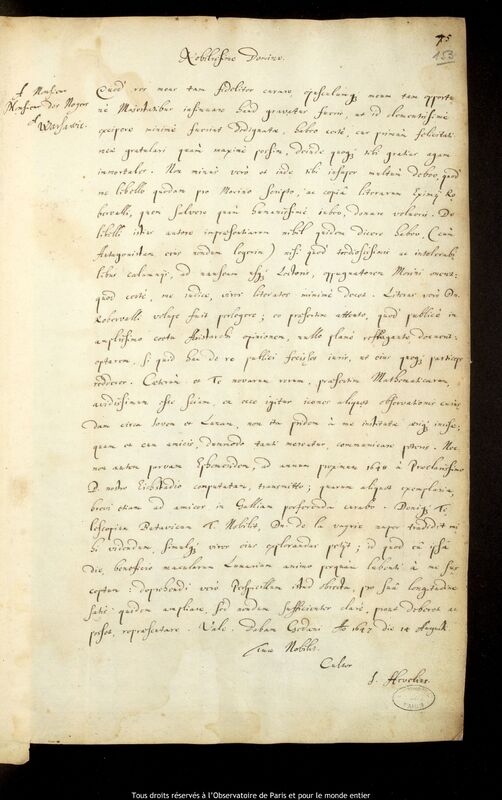 75
153
Nobilissime Domine.
A Monsieur
Monsieur Des Noyers
A Warsavie.
Quod res meas tam fideliter curare, opusculumq; meum tam opportu
nè Majestatibus insinuare haud gravatus fueris, ut id clementissimè
excipere minimè fuerint dedignatæ, habeo certè, cur primùm felicitati
meæ gratulari quàm maximè possim, deinde quoq; tibi gratias agam
immortales. Non minus verò et inde tibi insuper multum debeo, quod
me libello quodam pro Morino scripto, ac copiâ literarum Eximij Ro
bervalli, quem salvere quàm humanissimè jubeo, donare volueris. De
libelli istius autore impræsentiarum nihil quidem dicere habeo, (cùm
Antagonistam ejus nondum legerim) nisi quod tædiosissimis ac intolerabi
libus calumnijs, ad nauseam usq; Lectoris, oppugnatorem Morini oneret:
quod certè, me judice, viros literatos minimè decet. Literas verò Dn.
Robervalli volupe fuit perlegere; eo præsertim attento, quod publicè in
amplissimo cœtu Aristarchi opinionem, nullo planè refragante, demonst.
optarem, si quid hac de re publici fecisset juris, ut ejus quoq; particeps
redderer. Cæterùm et Te novarum rerum, præsertim Mathematicarum,
avidissimum esse sciam, en ecce igitur icones aliquot observationis cujus
dam circa Jovem et Lunam, non ita pridem à me institutæ
quam et cum amicis, dummodo tanti mereatur, communicare poteris. Nec
non autem parvam Ephemeridem, ad annum proximum 1648 à Præclarissimo
D. nostro Eichstadio computatam, transmitto; quarum aliquot exemplaria,
brevi etiam ad amicos in Galliam perferenda curabo. Deniq; Te
lescopium Batavicum T. Nobilit. Dn. de la Vayrie nuper tradidit mi
hi videndum, simulq; vires ejus explorandas petijt; id quod eâ ipsâ
die, beneficio macularum Lunarium animo perquam lubenti à me sus
ceptum: deprehendi verò Perspicillum istud objecta, pro suâ longitudine
satis quidem ampliare, sed nondum sufficienter clarè, prout deberet ac
posset, repræsentare. Vale. Dabam Gedani Ao 1647 die 14 Augusti.
Tuæ Nobilit.
Cultor
J. Hevelius.
Tous droits réservés à l'Observatoire de Paris et pour le monde entier